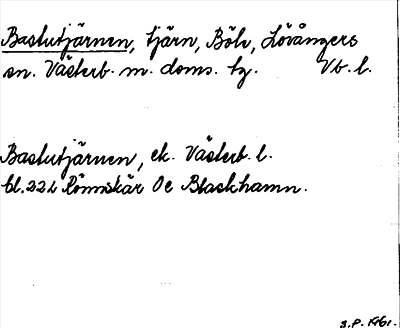 Bastutjärnen, tjärn, Böle, Lövångers
sn. Västerb. m. doms. tg. Vb. l.
Bastutjärnen, ek. Västerb. l.
bl. 22 L Rönnskär Oe Blackhamn.
S.P. 1961.